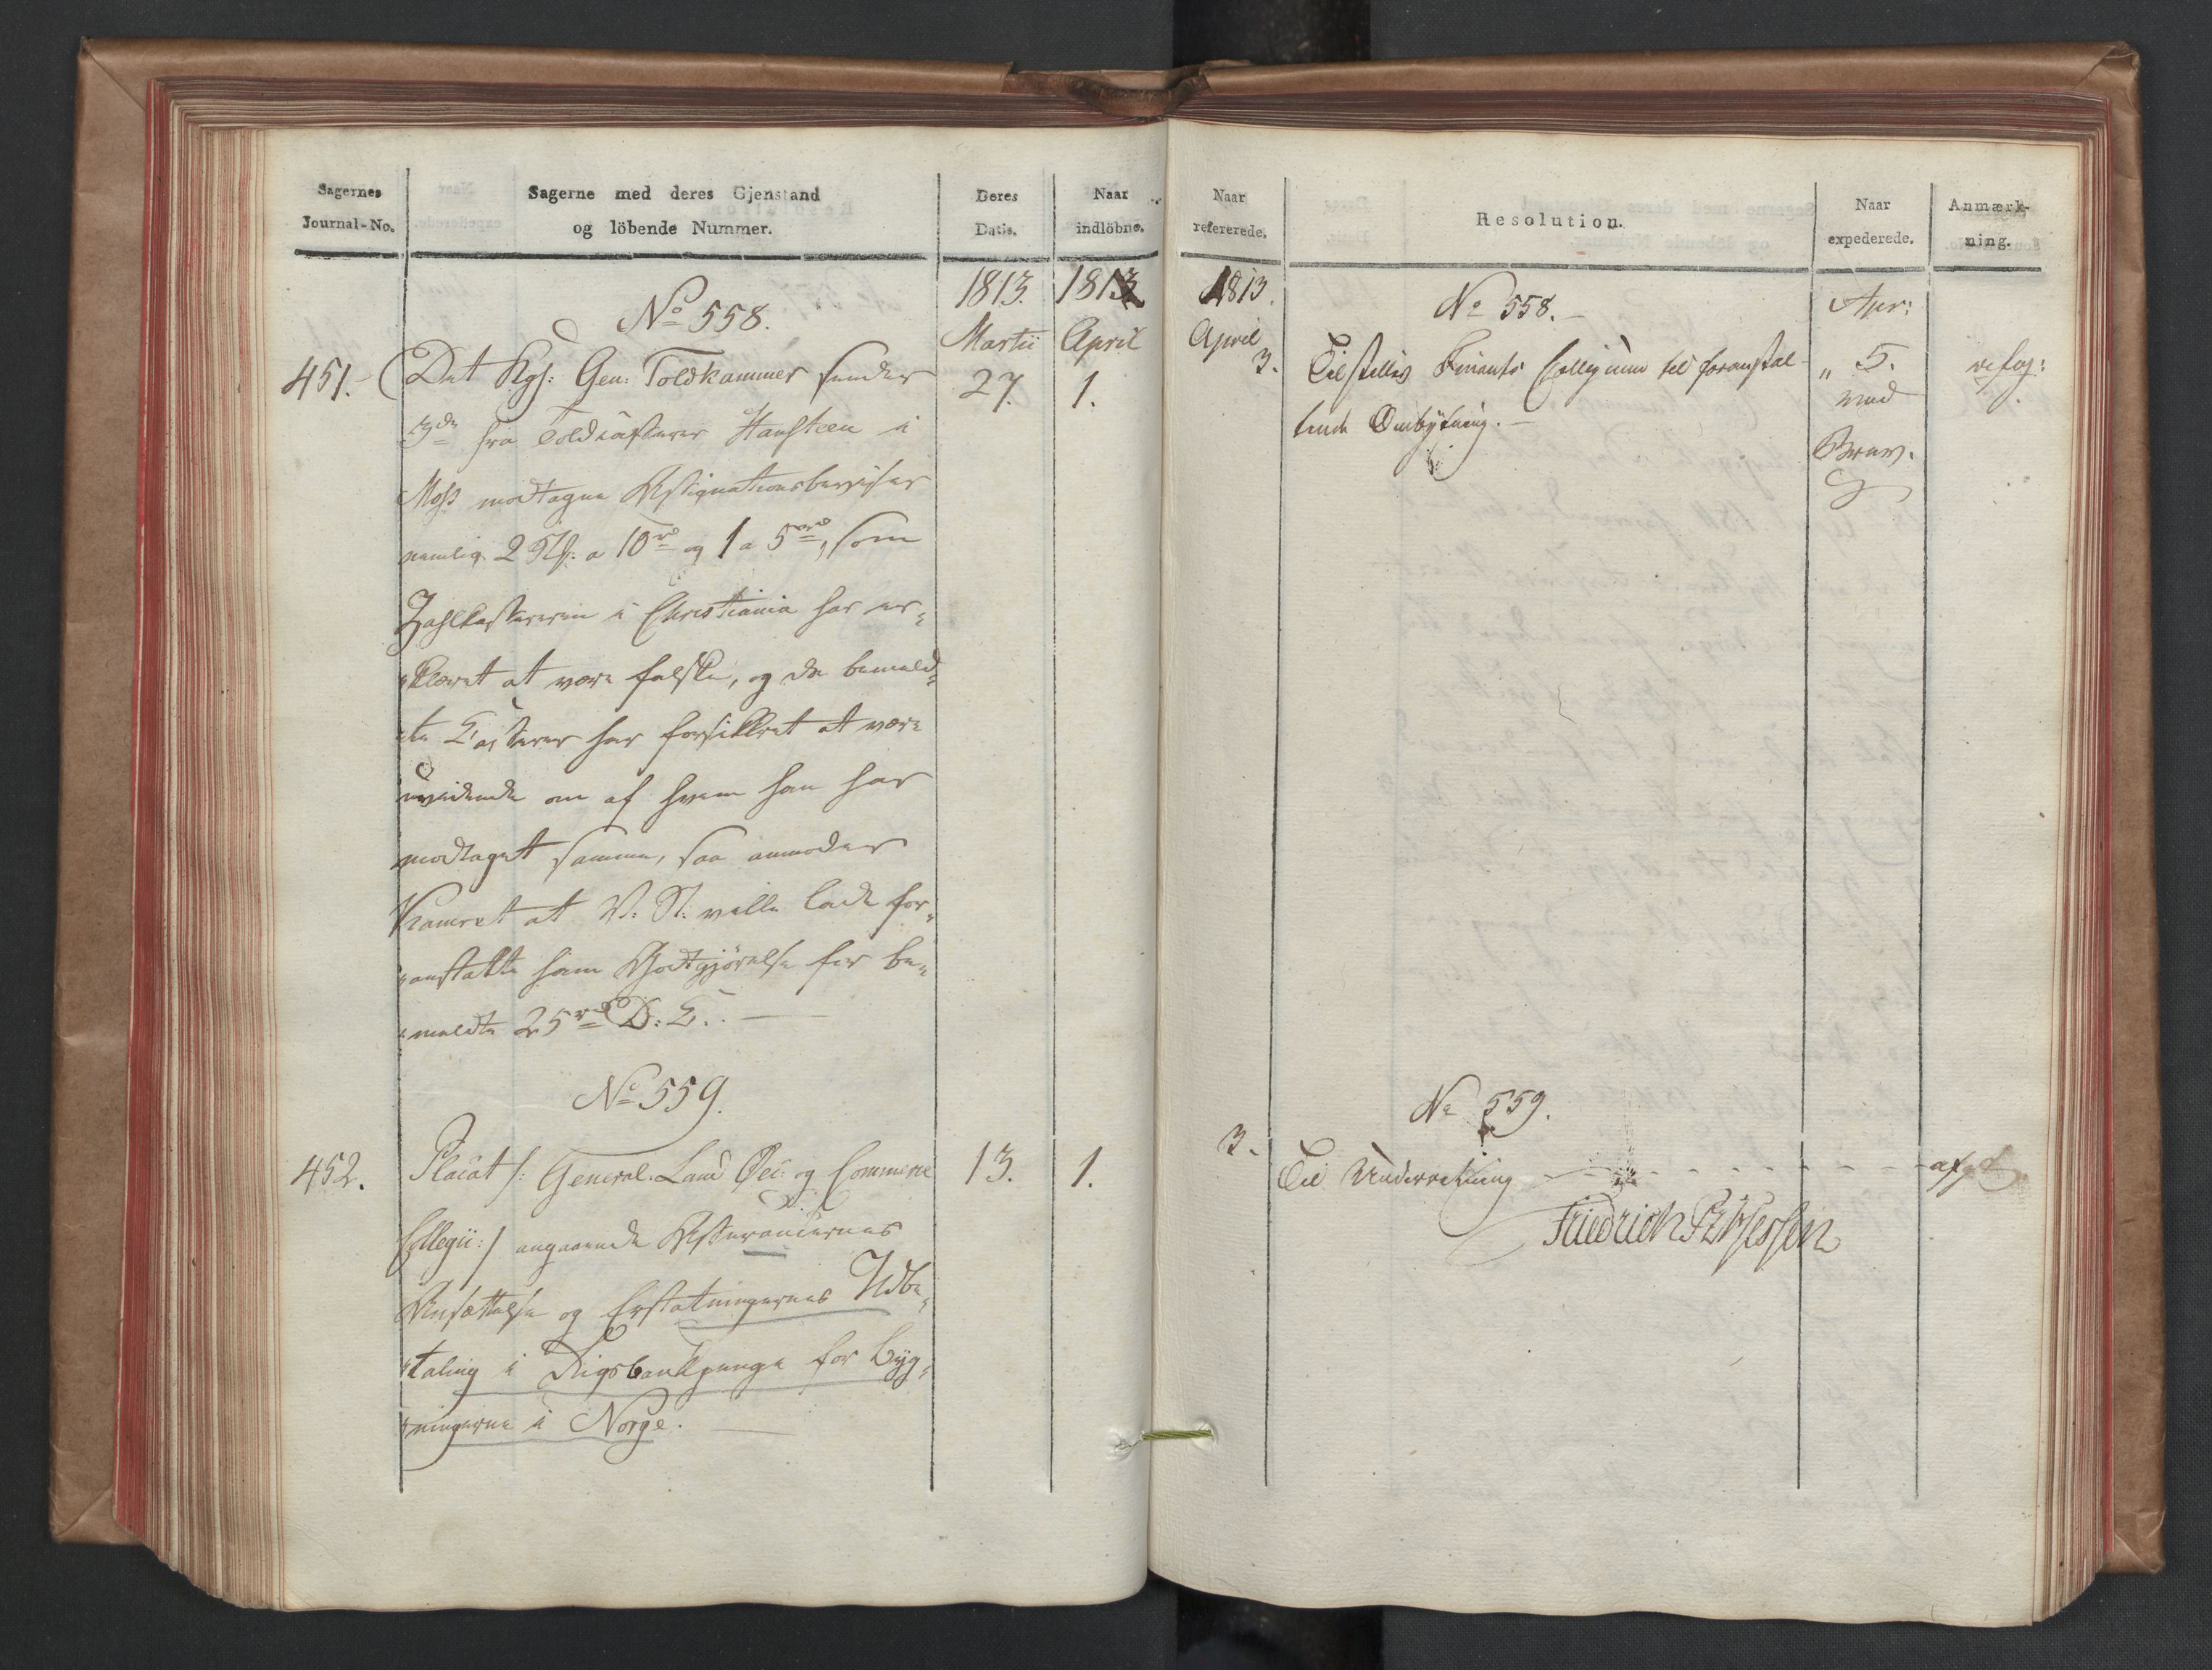 Sagernes
Journal-No.
Sagerne med deres Gjenstand
og löbende Nummer.
Deres
Datis.
Naar
indlöbne.
1813.
1813
Martii
April
No 558.
451.
Det Kgl: Gen: Toldkammer sender
3de fra Toldcasserer Hansteen i
Moss modtagne Assignationsbeviser
nemlig 2 Stk: a 10rd og 1 a 5rd, som
Zahlkassereren i Christiania har er-
klæret at være falske, og da bemeld-
te Casserer har forsikkret at være
uvidende om af hvem han har
modtaget samme, saa anmoder
Kamret at V: St: ville lade for-
anstalte ham Godtgjörelse for be-
meldte 25rd D: C:
27.
1.
No 559.
452.
Placat /: General. Land Oec: og Commerce
Collegii :/ angaaende Assurancernes
Ansættelse og Erstatningernes Udbe-
taling i Rigsbankpenge for Byg-
ningerne i Norge.
13.
1.
Naar
refererede.
Resolution.
Naar
expederede.
Anmærk-
ning.
1813.
April
No 558.
Apr:
3.
Tilstilles Finants Collegium til foranstal-
tende Ombytning.
" 5.
med
Brev.
No 559.
3.
Til Underretning
Friedrich